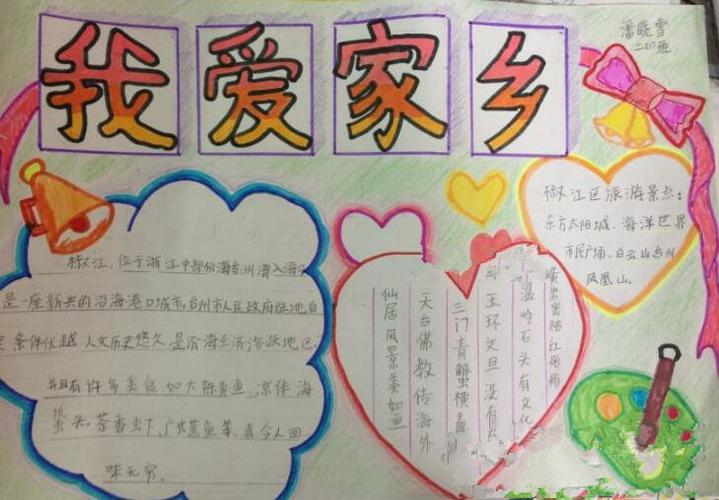 我爱家乡
潘晓雪
二(2)班
椒江，位于浙江中部沿海台州湾入海口
是一座新兴的沿海港口城市，台州市人民政府驻地，自
条件优越，人文历史悠久，是沿海经济活跃地区。
并且有许多美食，如大陈黄鱼，凉伴海
蜇头，茶香虾，广式蒸鱼等，真令人回
味无穷。
椒江区旅游景点：
东方太阳城、海洋世界
市民广场、白云山、台州
凤凰山。
黄岩蜜桔红彤彤
温岭石头有文化
玉环文旦没有
三门青蟹横着
天台佛教传海外
仙居风景美如画